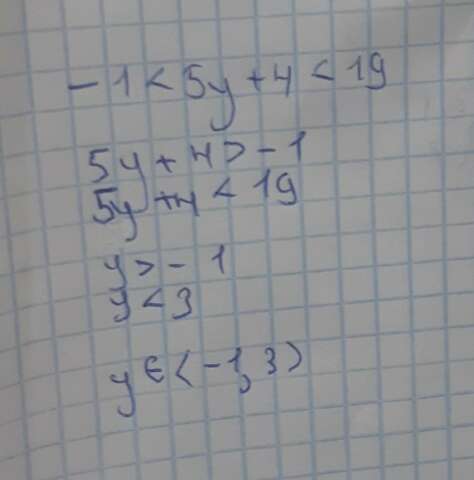 -1 < 5y + 4 < 19
5y + 4 > -1
5y + 4 < 19
y > -1
y < 3
y ∈ ⟨-1, 3⟩